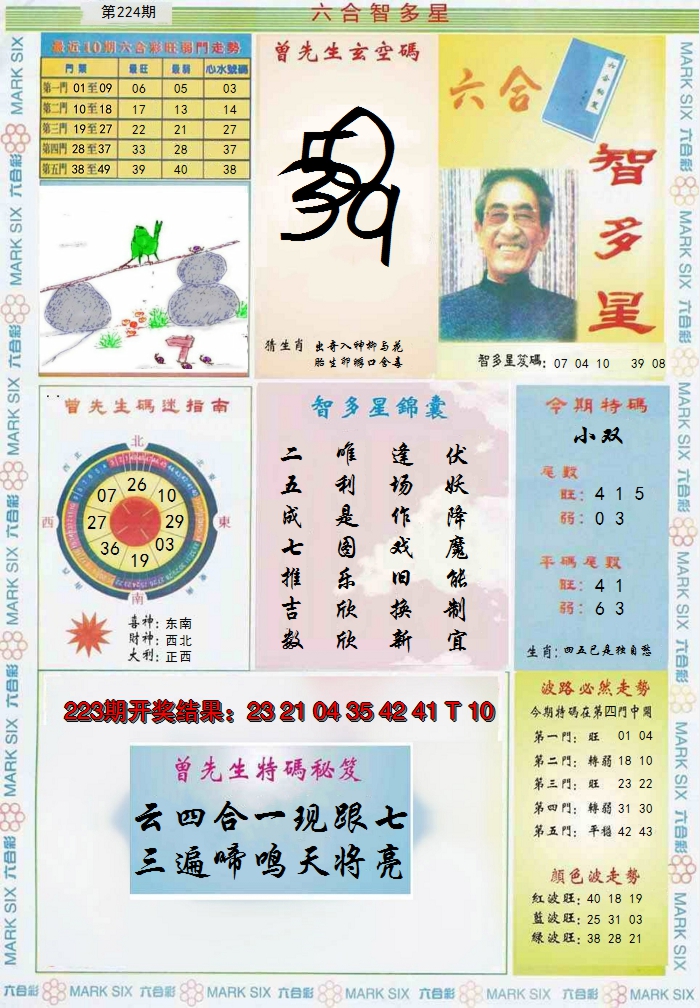 第224期
六合智多星
最近10期六合彩旺弱門走勢
門類 最旺 最弱 心水號碼
第一門 01至09 06 05 03
第二門 10至18 17 13 14
第三門 19至27 22 21 27
第四門 28至37 33 28 37
第五門 38至49 39 40 38
曾先生玄空碼
猜生肖
虫奇入神柳与花
胎生卵孵口含毒
六合
智多星
智多星笈碼: 07 04 10 39 08
曾先生碼迷指南
北
東
南
西
東北
西北
西南
東南
26
10
29
03
19
36
27
07
喜神: 东南
財神: 西北
大利: 正西
智多星錦囊
伏妖降魔能制宜
逢场作戏旧换新
唯利是图乐欣欣
二五成七推吉数
今期特碼
小双
尾數
旺: 4 1 5
弱: 0 3
平碼尾數
旺: 4 1
弱: 6 3
生肖: 四五已是独自愁
223期开奖结果: 23 21 04 35 42 41 T 10
曾先生特碼秘笈
云四合一现跟七
三遍啼鸣天将亮
波路必然走勢
今期特碼在第四門中開
第一門: 旺 01 04
第二門: 轉弱 18 10
第三門: 旺 23 22
第四門: 轉弱 31 30
第五門: 平穩 42 43
顔色波走勢
紅波旺: 40 18 19
藍波旺: 25 31 03
绿波旺: 38 28 21
六合彩 MARK SIX